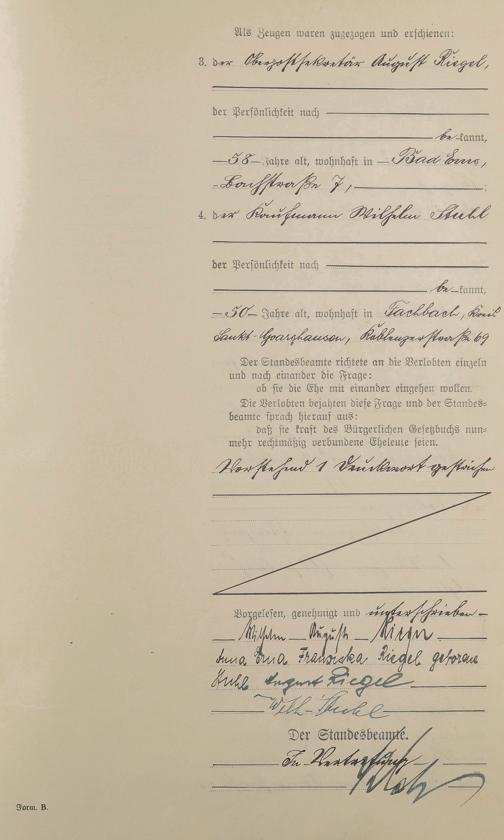 Als Zeugen waren zugezogen und erschienen:
3. der Oberpostsekretär August Riegel,
der Persönlichkeit nach
be kannt,
58 Jahre alt, wohnhaft in Bad Ems,
Bachstraße 7,
4. der Kaufmann Wilhelm Stuhl
der Persönlichkeit nach
be kannt,
50 Jahre alt, wohnhaft in Fachbach, Kreis
Sankt-Goarshausen, Koblenzerstraße 69
Der Standesbeamte richtete an die Verlobten einzeln
und nach einander die Frage:
ob sie die Ehe mit einander eingehen wollen.
Die Verlobten bejahten diese Frage und der Standes-
beamte sprach hierauf aus:
daß sie kraft des Bürgerlichen Gesetzbuchs nun-
mehr rechtmäßig verbundene Eheleute seien.
Vorstehend 1 Druckwort gestrichen
Vorgelesen, genehmigt und unterschrieben
Wilhelm August
Anna Erna Franziska Riegel geborene
Stuhl August Riegel
Wilh. Stuhl
Der Standesbeamte.
In Vertretung
Form. B.